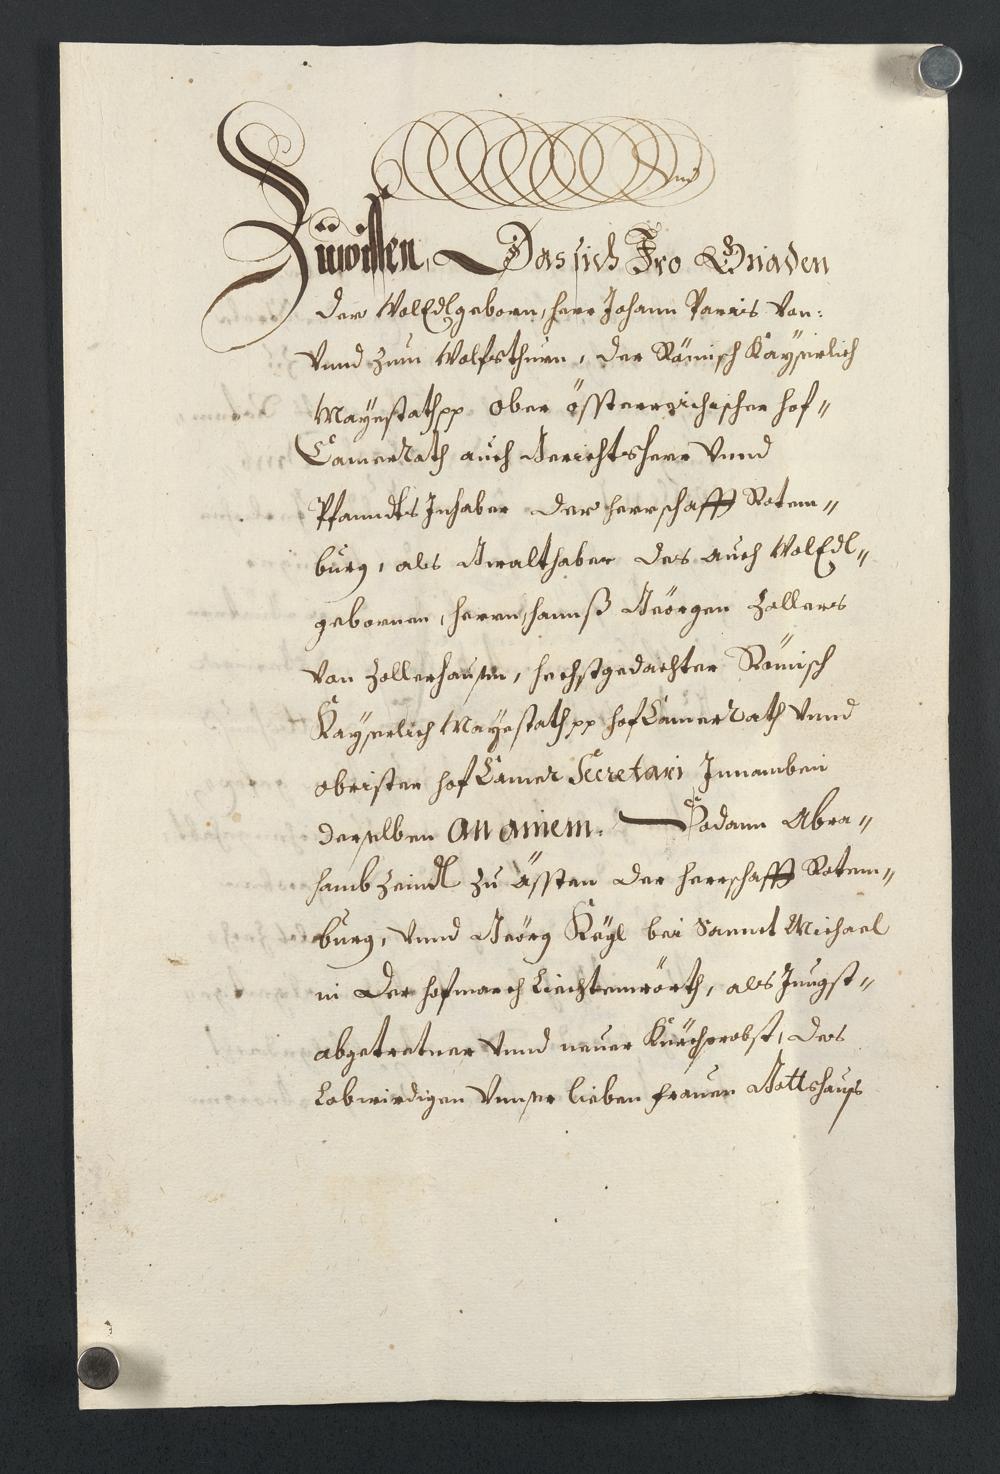 Zuwissen, Das sich Iro Gnaden
der WolEdlgeborn, herr Johann Paris von:
vnnd zum Wolfsthurn, der Römisch Kayserlich
Mayestath pp ober össterreichischer hof„
CamerRath auch Gerichtsherr vnnd
Pfanndts Inhaber der herrschafft Rotem„
burg, als Gwalthaber des auch WolEdl„
gebornen, herrn, hannß Geörgen Zollers
von Zollerhausen, hechstgedachter Römisch
Kayserlich Mayestath pp hofCamerRath vnnd
obristen hofCamer Secretari Innamben
derselben an ainem. Sodann Abra„
hamb Zeindl zu ässten der herrschafft Rotem„
burg, vnnd Geörg Kögl bei Sannct Michael
in der hofmarch Liechtenwörth, als Jungst„
abgetretner vnnd neuer Kürchprobst, des
Lobwirdigen vnnser lieben frauen Gottshaus